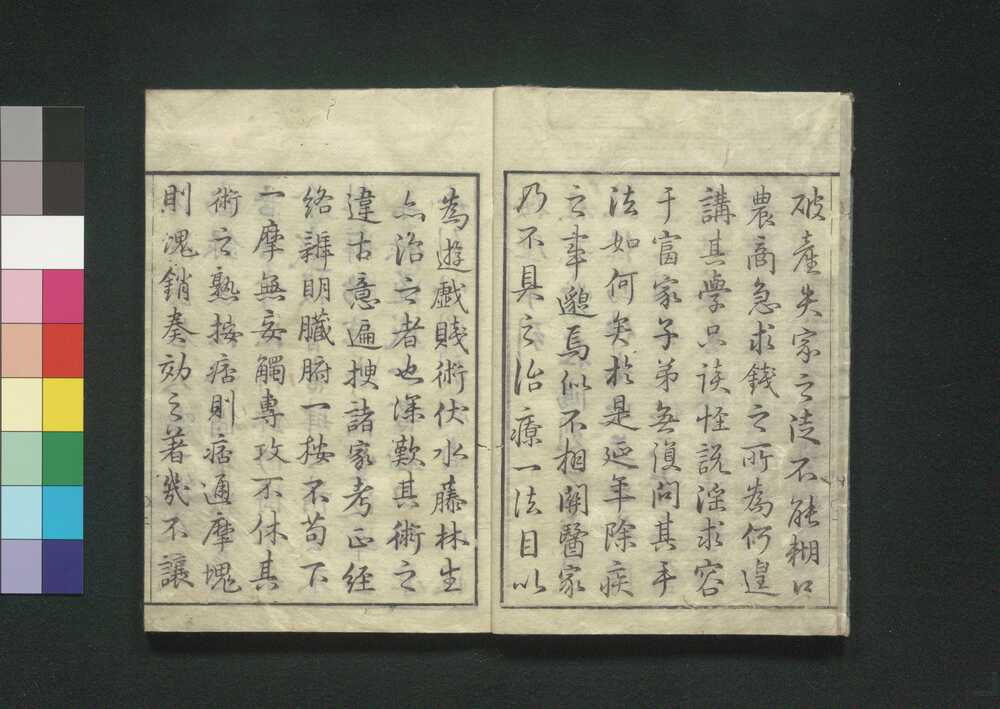 破產失家之徒不能糊口
農商急求錢之所為何遑
講其學只談怪說淫求容
于富家子弟無復問其手
法如何矣於是延年除疾
之事邈焉似不相關醫家
乃不具之治療一法目以
為遊戲賤術伏水藤林生
亦治之者也深歎其術之
違古意遍捜諸家考正経
絡辨明臓腑一按不苟下
一摩無妄觸專攻不休其
術之熟按痞則痞通摩塊
則塊銷奏効之著幾不讓